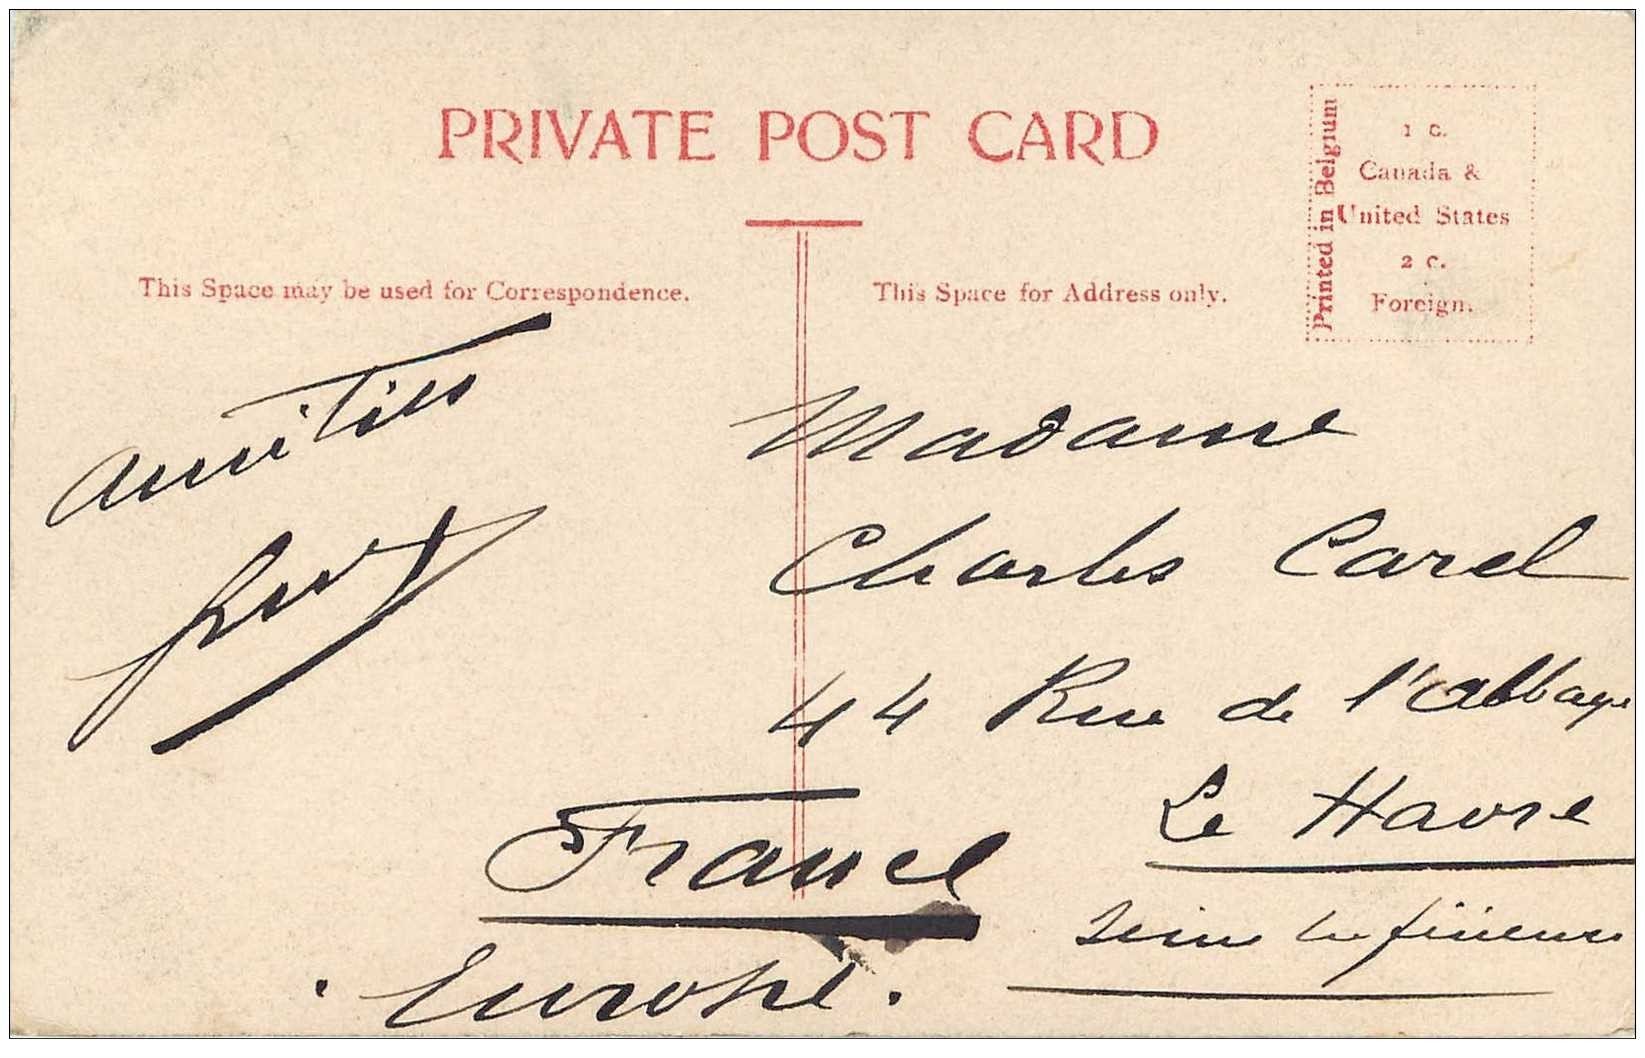 PRIVATE POST CARD
Printed in Belgium
1 c.
Canada &
United States
2 c.
Foreign.
This Space may be used for Correspondence.
This Space for Address only.
amitiés
Madame
Charles Carel
44 Rue de l'abbaye
Le Havre
France
Seine Inférieure
Europe.